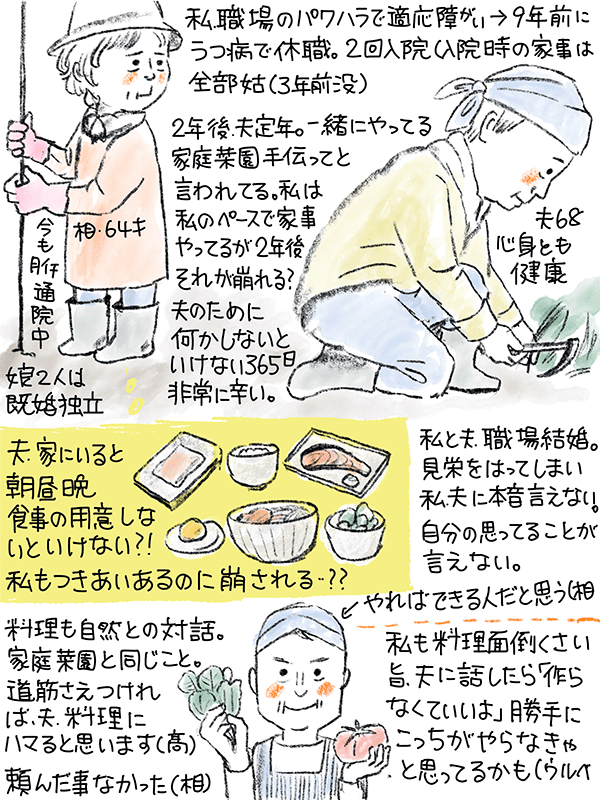 私、職場のパワハラで適応障がい→9年前に
うつ病で休職。2回入院(入院時の家事は
全部姑(3年前没)
2年後、夫定年。一緒にやってる
家庭菜園手伝ってと
言われてる。私は
私のペースで家事
やってるが2年後
それが崩れる?
夫のために
何かしないと
いけない365日
非常に辛い。
相・64才
今も月1通院中
夫68
心身とも
健康
娘2人は
既婚独立
夫、家にいると
朝昼晩
食事の用意しな
いといけない?!
私もつきあいあるのに崩される‥??
私と夫、職場結婚。
見栄をはってしまい
私、夫に本音言えない。
自分の思ってることが
言えない。
←やればできる人だと思う(相
料理も自然との対話。
家庭菜園と同じこと。
道筋さえつけれ
ば、夫、料理に
ハマると思います(高)
頼んだ事なかった(相)
私も料理面倒くさい
旨、夫に話したら「作ら
なくていいよ」勝手に
こっちがやらなきゃ
と思ってるかも(ウルイ